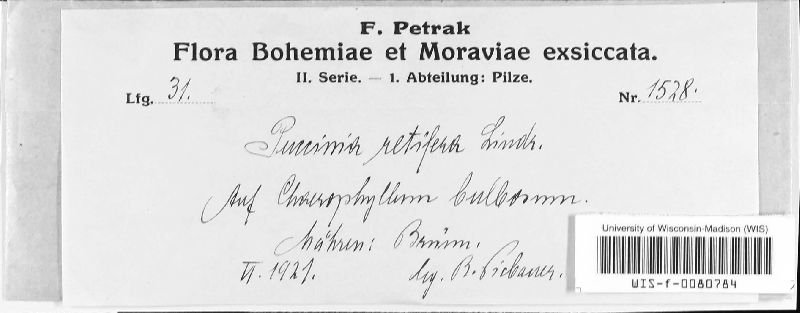 F. Petrak
Flora Bohemiae et Moraviae exsiccata.
II. Serie. — 1. Abteilung: Pilze.
Lfg. 31. Nr. 1528.
Puccinia retifera Lindr.
Auf Chaerophyllum bulbosum.
Mähren: Brünn.
VI. 1921. leg. R. Picbauer.
University of Wisconsin-Madison (WIS)
WIS-f-0080784